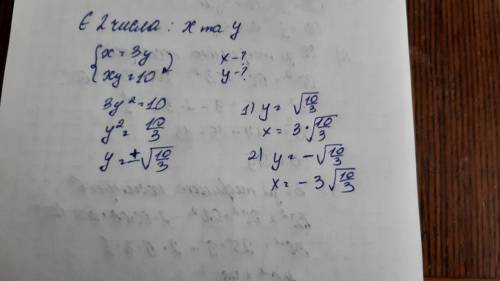 Є 2 числа: x та y
{ x = 3y
xy = 10
x - ?
y - ?
3y² = 10
y² = 10/3
y = ±√(10/3)
1) y = √(10/3)
x = 3·√(10/3)
2) y = -√(10/3)
x = -3√(10/3)